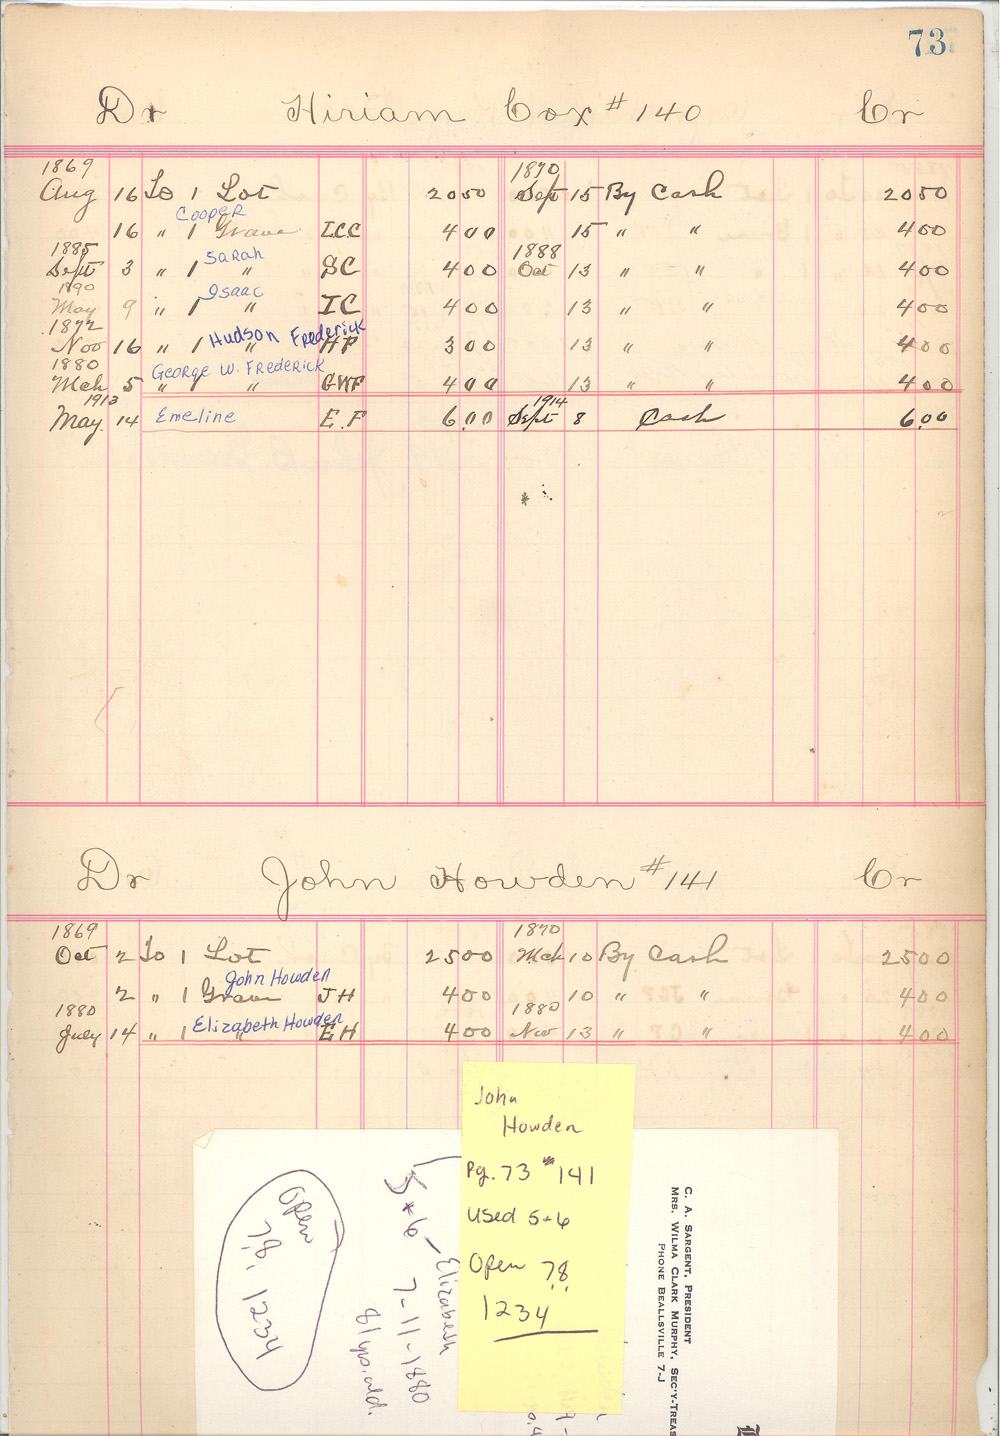 73
Dr Hiriam Cox #140 Cr
1869 1870
Aug 16 To 1 Lot 2050 Sept 15 By Cash 2050
Cooper
16 " 1 Grave ICC 400 15 " " 400
1885 Sarah 1888
Sept 3 " 1 " SC 400 Oct 13 " " 400
1890 Isaac
May 9 " 1 " IC 400 13 " " 400
1872 Hudson Frederick
Nov 16 " 1 " HF 300 13 " " 400
1880 George W. Frederick
Mch 5 " 1 " GWF 400 13 " " 400
1913 1914
May 14 Emeline E.F 6.00 Sept 8 Cash 6.00
Dr John Howden #141 Cr
1869 1870
Oct 2 To 1 Lot 2500 Mch 10 By Cash 2500
John Howden
2 " 1 Grave JH 400 10 " " 400
1880 Elizabeth Howden 1880
July 14 " 1 " EH 400 Nov 13 " " 400
John
Howden
Pg. 73 #141
Used 5+6
Open 7.8.
1234
Open
7.8.
1234
5+6 - Elizabeth
7-11-1880
81 yrs. old.
C. A. Sargent, President
Mrs. Wilma Clark Murphy, Sec'y-Treas
Phone Beallsville 7-J